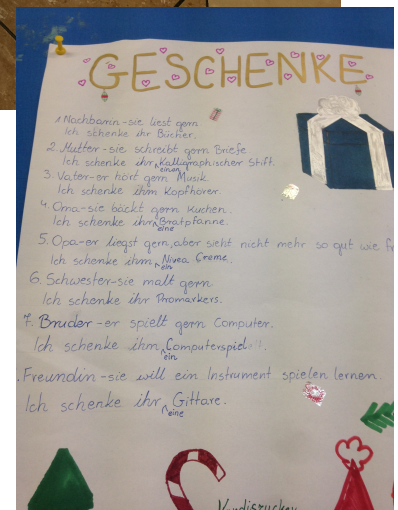 GESCHENKE
1. Nachbarin - sie liest gern
Ich schenke ihr Bücher.
2. Mutter - sie schreibt gern Briefe
Ich schenke ihr einen Kalligraphischer Stift.
3. Vater - er hört gern Musik
Ich schenke ihm Kopfhörer.
4. Oma - sie bäckt gern Kuchen.
Ich schenke ihr eine Bratpfanne.
5. Opa - er liegst gern, aber sieht nicht mehr so gut wie
Ich schenke ihm ein Nivea Creme.
6. Schwester - sie malt gern
Ich schenke ihr Promarkers.
7. Bruder - er spielt gern Computer.
Ich schenke ihm ein Computerspiel.
Freundin - sie will ein Instrument spielen lernen.
Ich schenke ihr eine Gittare.